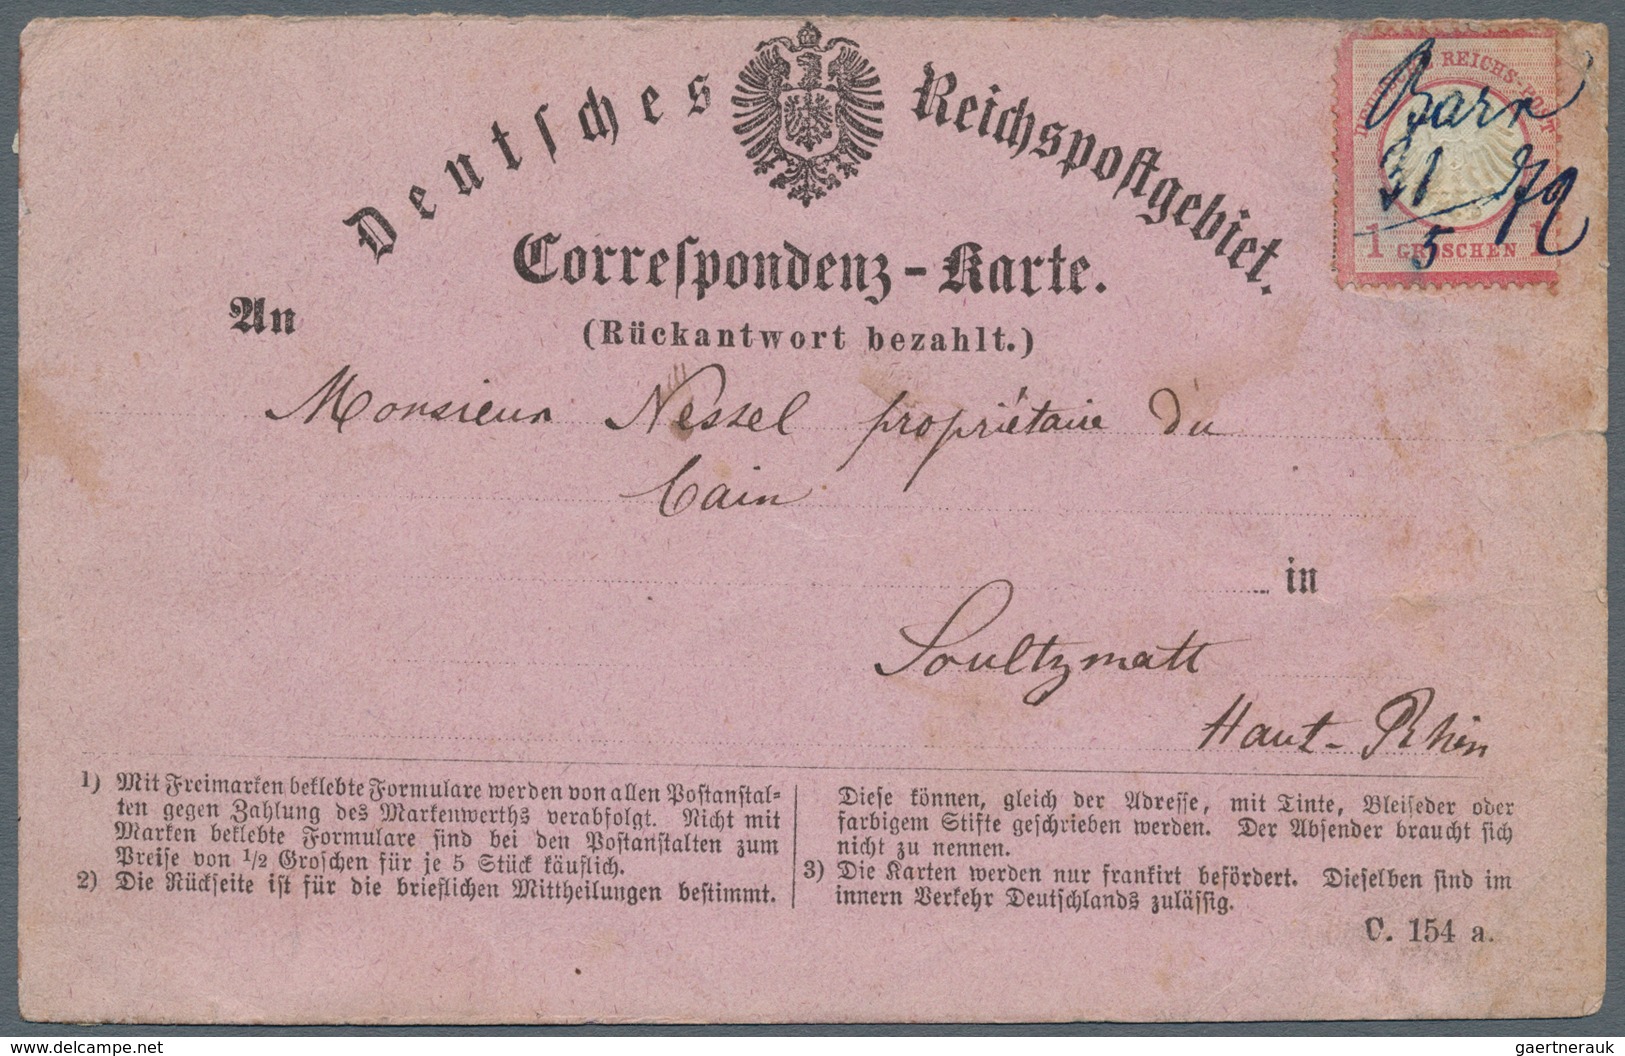 Deutſches Reichspoſtgebiet.
DEUTSCHE REICHS-POST
Barr
31/5 72
1 GROSCHEN 1
Correſpondenz-Karte.
(Rückantwort bezahlt.)
An
Monsieur Nessel propriétaire du
Bain
in
Soultzmatt
Haut-Rhin
1) Mit Freimarken beklebte Formulare werden von allen Poſtanſtal-
ten gegen Zahlung des Markenwerths verabfolgt. Nicht mit
Marken beklebte Formulare ſind bei den Poſtanſtalten zum
Preiſe von 1/2 Groſchen für je 5 Stück käuflich.
2) Die Rückſeite iſt für die brieflichen Mittheilungen beſtimmt.
Dieſe können, gleich der Adreſſe, mit Tinte, Bleifeder oder
farbigem Stifte geſchrieben werden. Der Abſender braucht ſich
nicht zu nennen.
3) Die Karten werden nur frankirt befördert. Dieſelben ſind im
innern Verkehr Deutſchlands zuläſſig.
C. 154 a.
www.delcampe.net
gaertnerauk